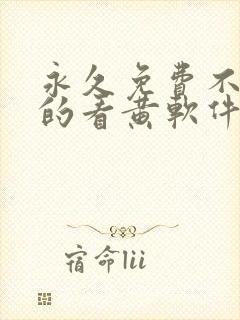 永久免費不
的看黄軟件
宿命lii